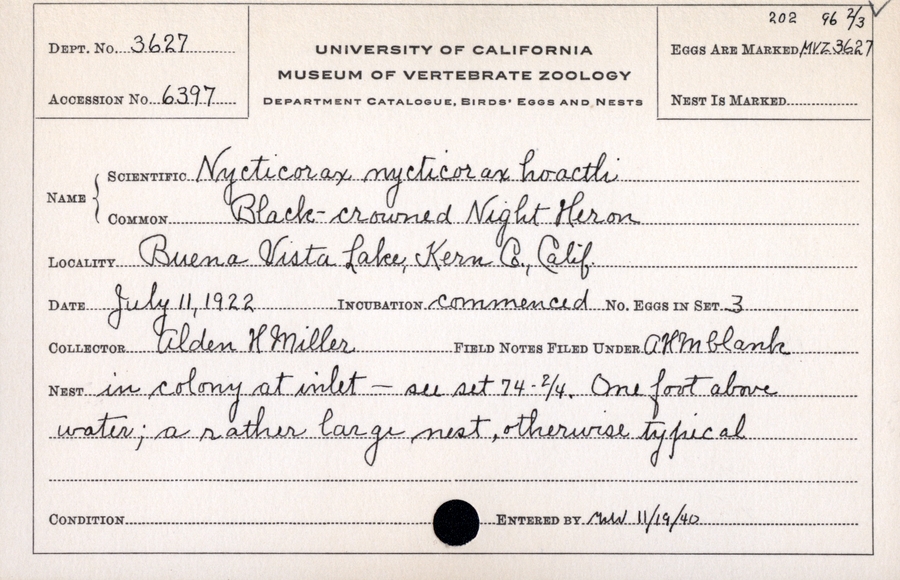 202 96 2/3
Dept. No. 3627
UNIVERSITY OF CALIFORNIA
MUSEUM OF VERTEBRATE ZOOLOGY
Department Catalogue, Birds' Eggs and Nests
Eggs Are Marked MVZ 3627
Accession No. 6397
Nest Is Marked
Name { Scientific Nycticorax nycticorax hoactli
Common Black-crowned Night Heron
Locality Buena Vista Lake, Kern Co., Calif.
Date July 11, 1922 Incubation commenced No. Eggs in Set 3
Collector Alden H Miller Field Notes Filed Under AHM blank
Nest in colony at inlet — see set 74-2/4. One foot above
water; a rather large nest, otherwise typical
Condition Entered by 11/19/40